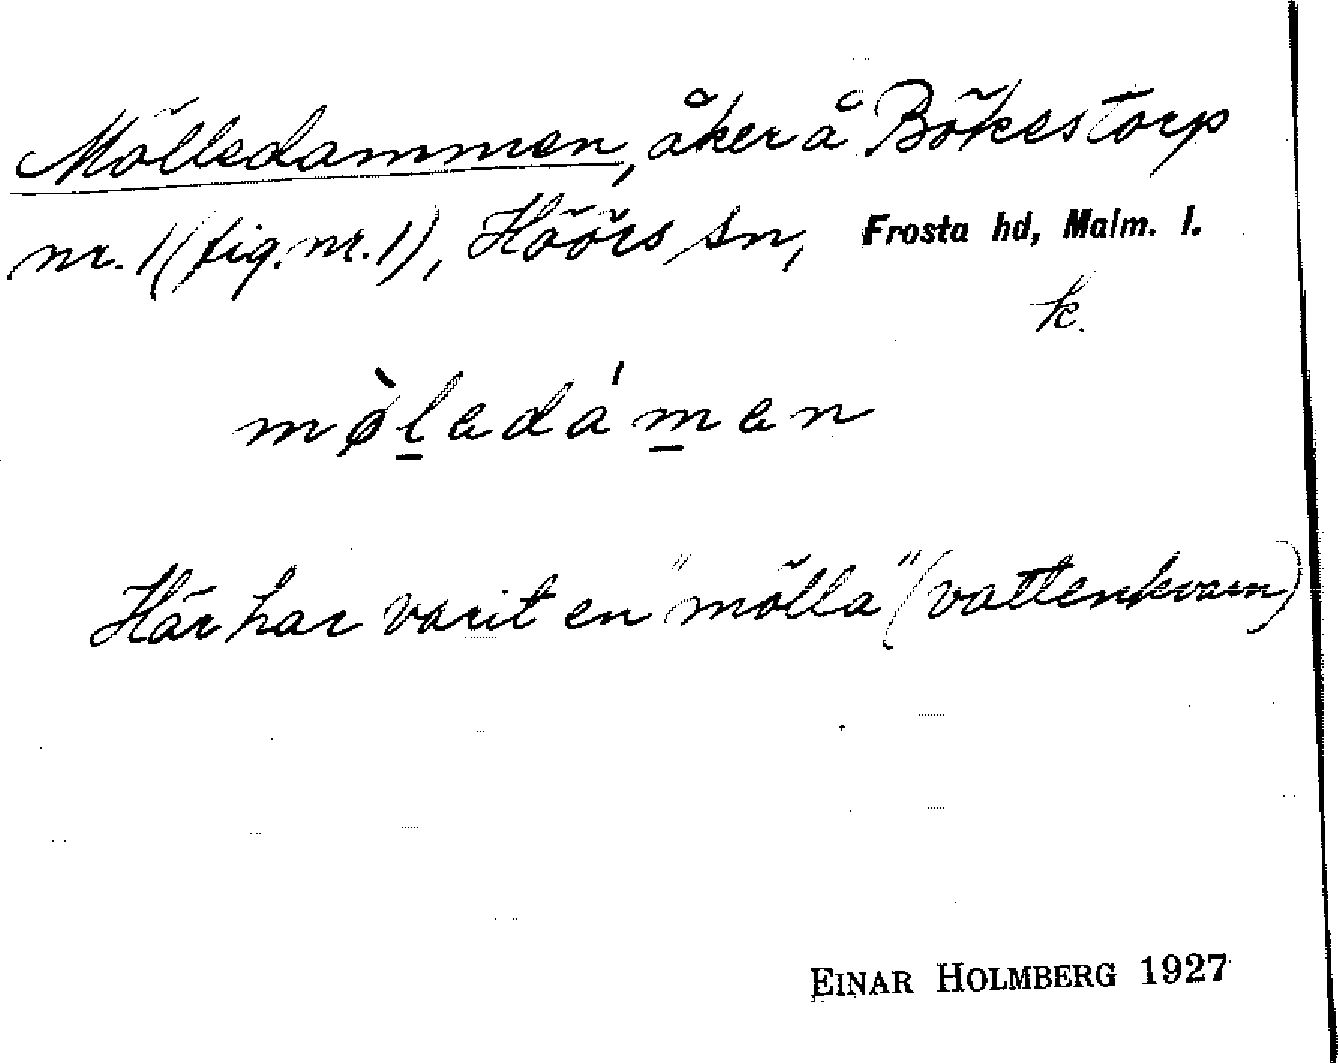 Mölledammen, åker å Bökestorp
nr. 1 (fig. nr. 1), Höörs sn, Frosta hd, Malm. l.
k.
mø̀ḻadámˍan
Här har varit en "mölla" (vattenkvarn)
EINAR HOLMBERG 1927